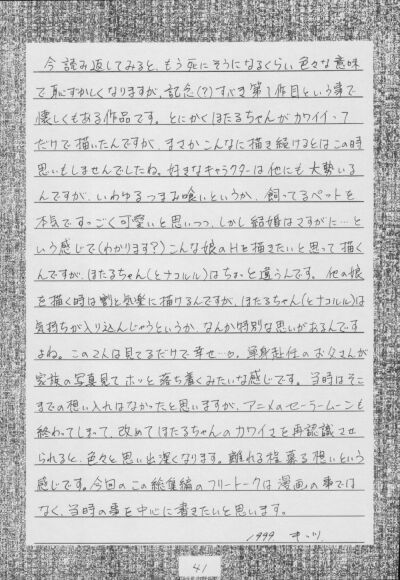 今読み返してみると、もう死にそうになるくらい色々な意味
で恥ずかしくなりますが、記念(?)すべき第1作目という事で
懐しくもある作品です。とにかくほたるちゃんがカワイイって
だけで描いたんですが、まさかこんなに描き続けるとはこの時
思いもしませんでしたね。好きなキャラクターは他にも大勢いる
んですが、いわゆるつまみ喰いというか、飼ってるペットを
本気ですっごく可愛いと思いつつ、しかし結婚はさすがに…と
いう感じで(わかります?)こんな娘のHを描きたいと思って描く
んですが、ほたるちゃん(とナコルル)はちょっと違うんです。他の娘
を描く時は割と気楽に描けるんですが、ほたるちゃん(とナコルル)は
気持ちが入り込んじゃうというか、なんか特別な思いがあるんです
よね。この2人は見てるだけで幸せ…や、単身赴任のお父さんが
家族の写真見てホッと落ち着くみたいな感じです。当時はそこ
までの想い入れはなかったと思いますが、アニメのセーラームーンも
終わってしまって、改めてほたるちゃんのカワイさを再認識させ
られると、色々と思い出深くなります。離れる程募る想いという
感じです。今回のこの総集編のフリートークは漫画の事では
なく、当時の事を中心に書きたいと思います。
1999
41